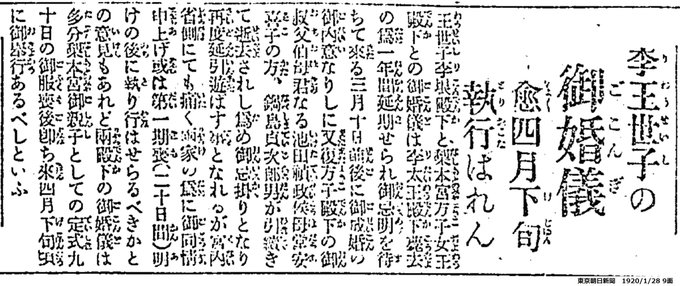 李王世子の
御婚儀
愈四月下旬
執行はれん
王世子李垠殿下と梨本宮方子女王
殿下との御婚儀は李太王殿下薨去
の爲一年間延期せられ御忌明を待
ちて來る三月十日前後に御成婚の
御內意なりしに又復方子殿下の御
叔父伯母君なる池田禎政侯母堂安
喜子の方、鍋島貞次郎男が引續き
て逝去されし爲め御忌掛りとなり
再度延引遊ばす事となれるが宮內
省側にても痛く兩家の爲に御同情
申上げ或は第一期喪(二十日間)明
けの後に執り行はせらるべきかと
の意見もあれど兩殿下の御婚儀は
多分梨本宮御親子としての定式九
十日の御服喪後卽ち來四月下旬頃
に御擧行あるべしといふ
東京朝日新聞 1920/1/28 9面